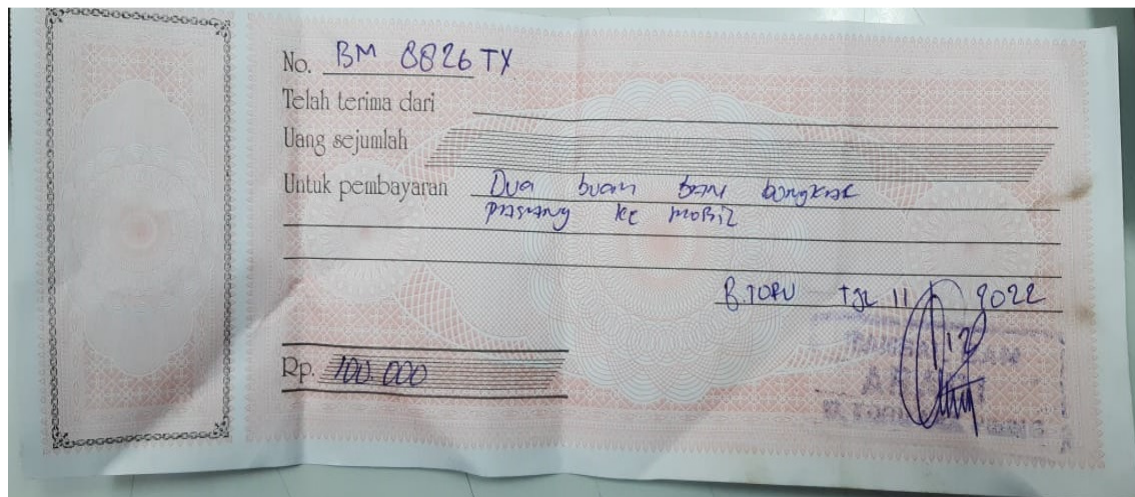 No. BM 8826 TY
Telah terima dari
Uang sejumlah
Untuk pembayaran Dua buah ban bongkar
pasang ke mobil
B.TORU TGL 11 2022
Rp. 100.000